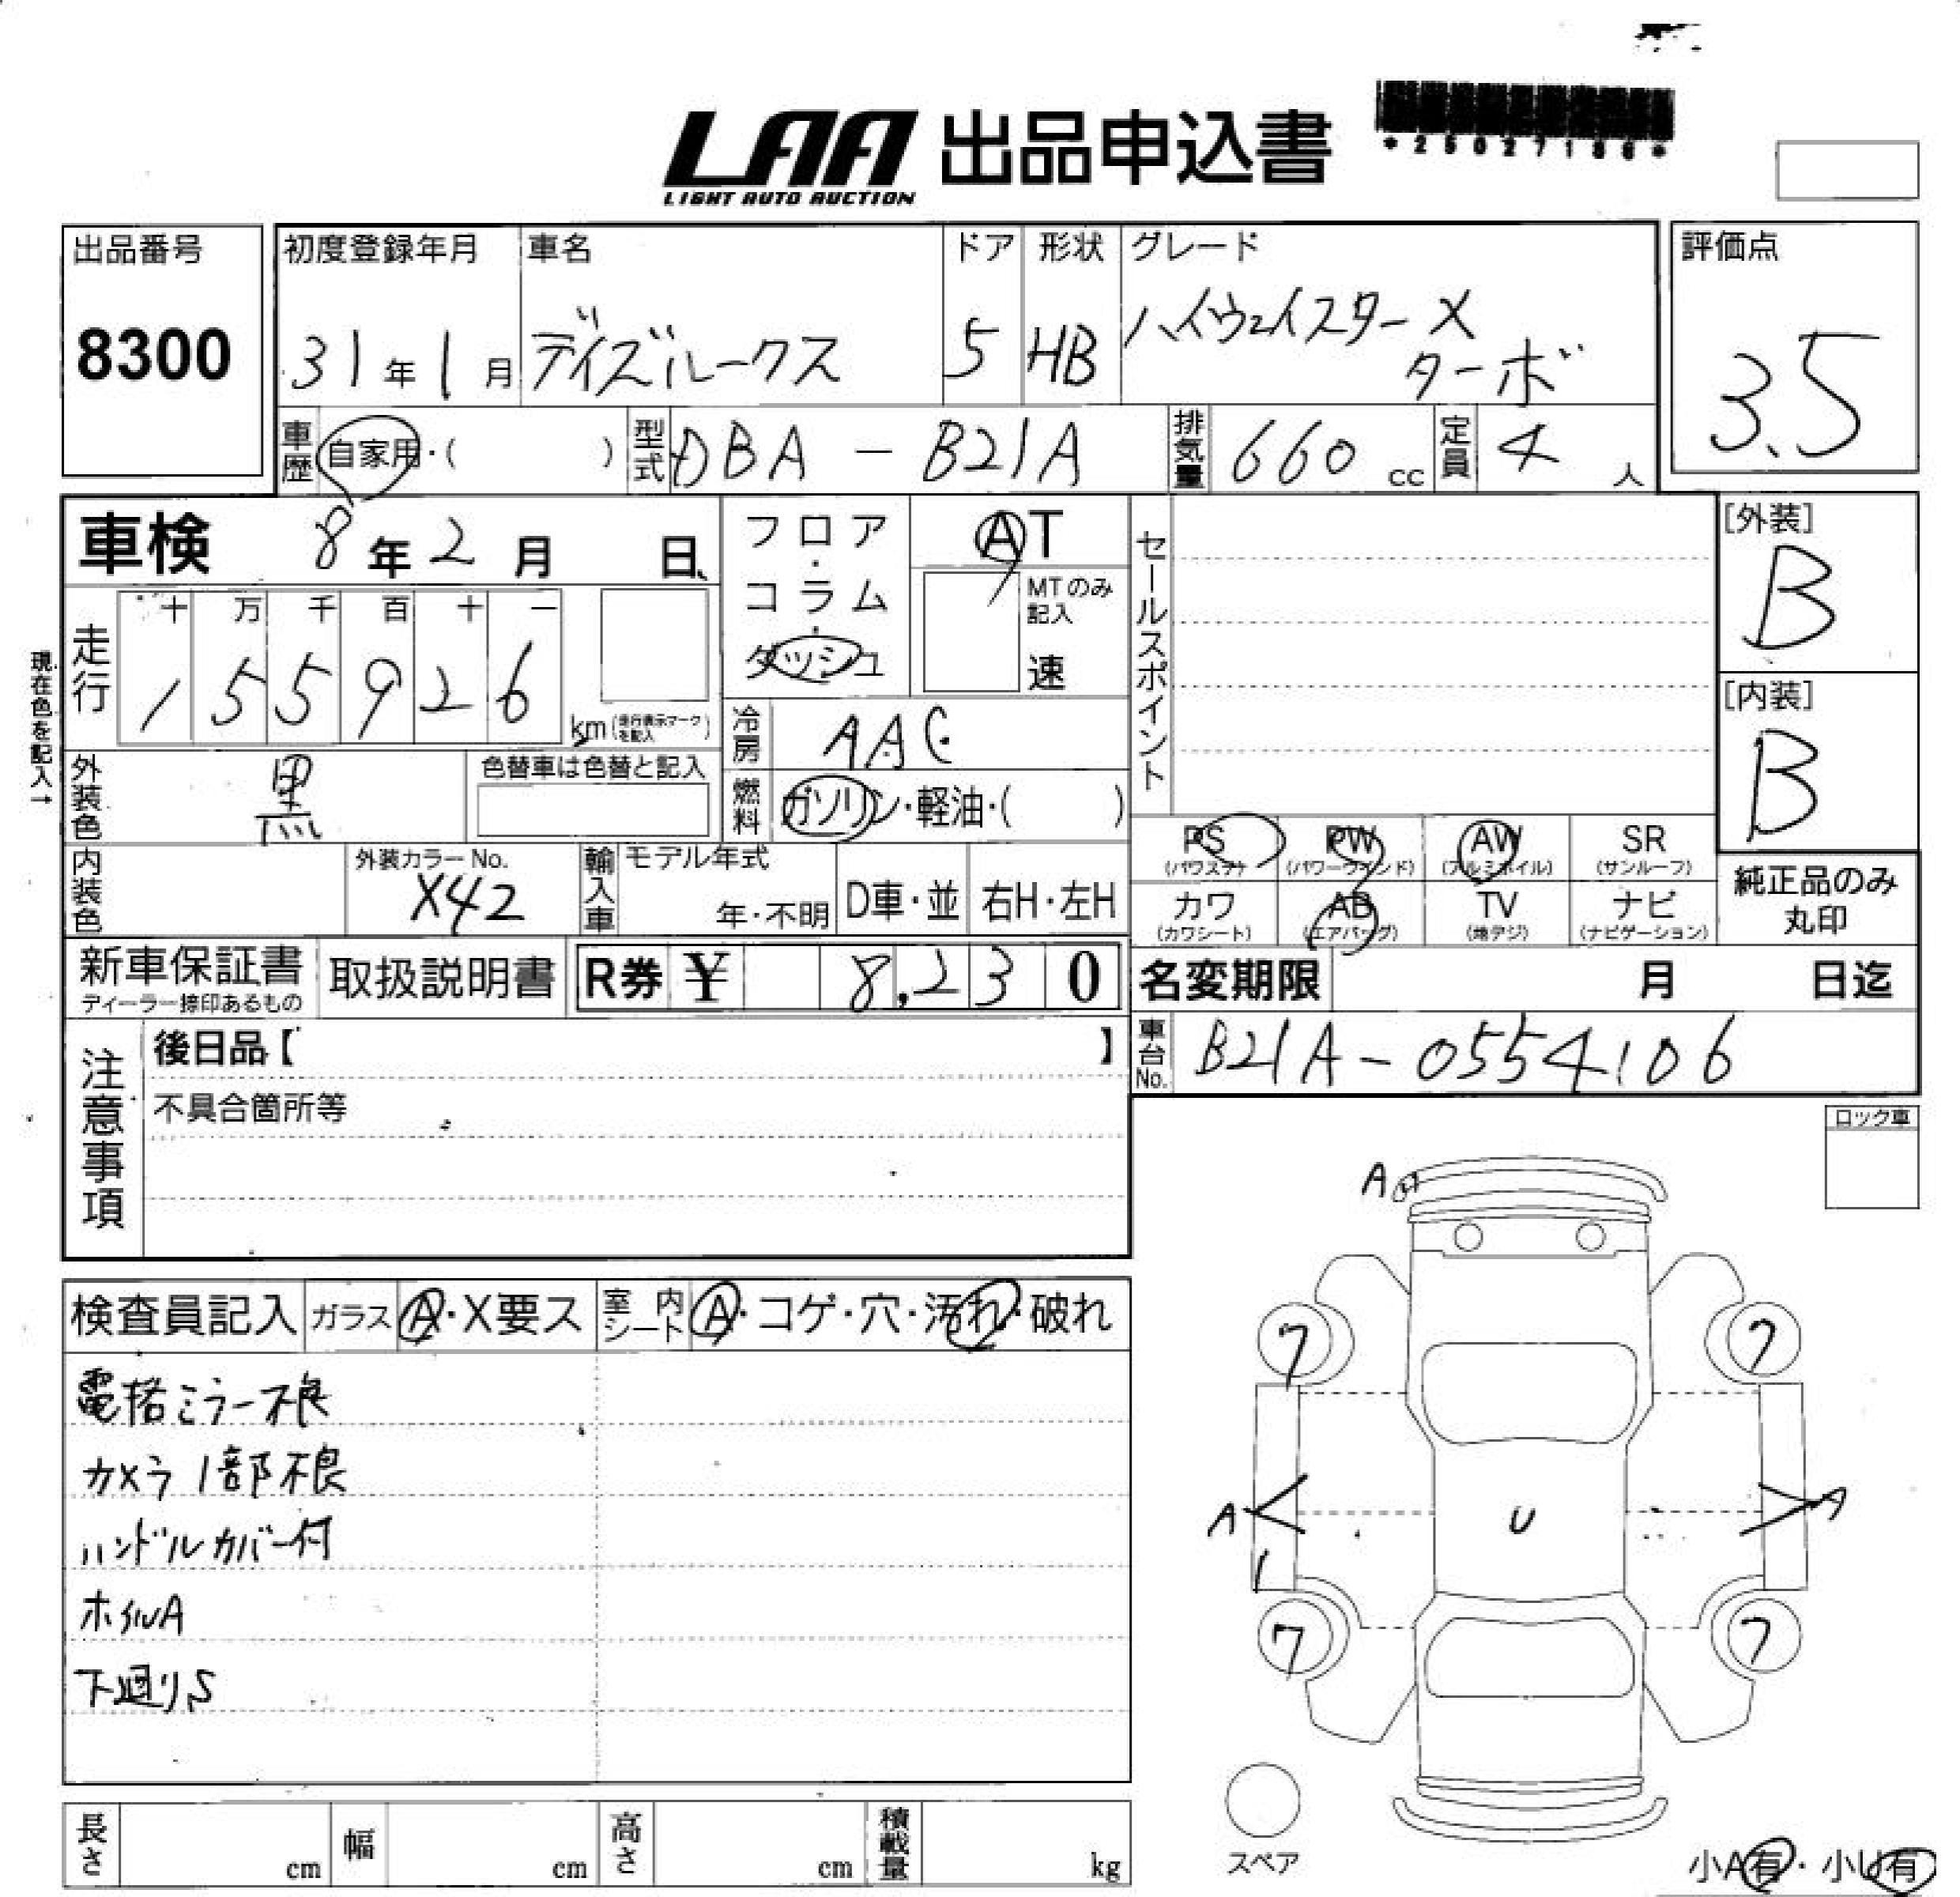 LAA 出品申込書
LIGHT AUTO AUCTION
*25027186*
出品番号
8300
初度登録年月
31年1月
車名
デイズルークス
ドア
5
形状
HB
グレード
ハイウェイスターX
ターボ
評価点
3.5
車歴 自家用・( )
型式 DBA - B21A
排気量 660 cc
定員 4 人
車検 8年2月 日
フロア・コラム・ダッシュ
AT
MTのみ記入
速
セールスポイント
[外装]
B
[内装]
B
現在色を記入→
走行 十 万 千 百 十 一
1 5 5 9 2 6 km (走行表示マークを記入)
冷房 AAC
外装色 黒
色替車は色替と記入
燃料 ガソリン・軽油・( )
PS (パワステ)
PW (パワーウインド)
AW (アルミホイル)
SR (サンルーフ)
カワ (カワシート)
AB (エアバッグ)
TV (地デジ)
ナビ (ナビゲーション)
純正品のみ
丸印
内装色
外装カラーNo.
X42
輸入車
モデル年式
年・不明
D車・並
右H・左H
新車保証書
ディーラー捺印あるもの
取扱説明書
R券 ¥ 8,230
名変期限 月 日迄
車台No. B21A-0554106
注意事項
後日品【 】
不具合箇所等
ロック車
検査員記入
ガラス A・X要ス
室内シート A・コゲ・穴・汚れ・破れ
電格ミラー不良
カメラ1部不良
ハンドルカバー付
ホイルA
下廻りS
A
7 7
A U A
1
7 7
スペア
小A有・小U有
長さ cm
幅 cm
高さ cm
積載量 kg